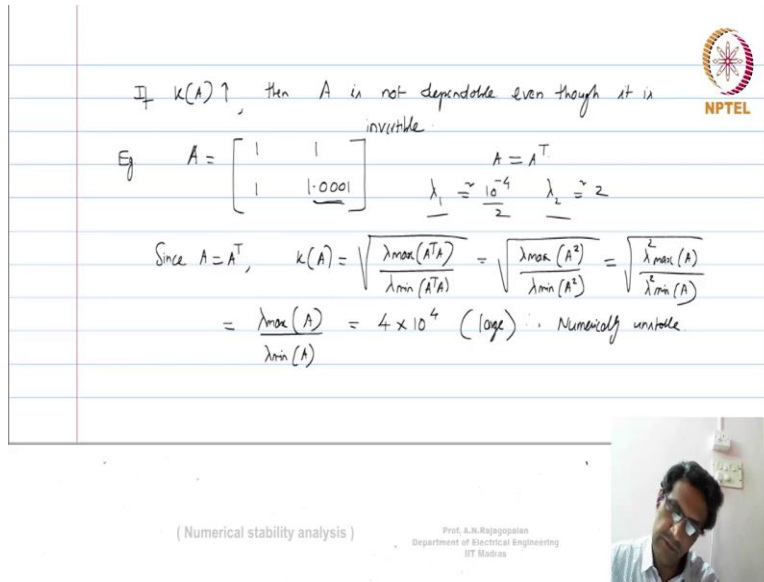 If K(A)↑, then A is not dependable even though it is
invertible.
NPTEL
Eg A = [1 1; 1 1.0001] A = A^T
λ₁ ≅ 10^-4/2 λ₂ ≅ 2
Since A = A^T, K(A) = √(λmax(A^T A)/λmin(A^T A)) = √(λmax(A²)/λmin(A²)) = √(λ²max(A)/λ²min(A))
= λmax(A)/λmin(A) = 4 × 10^4 (large) ∴ Numerically unstable
( Numerical stability analysis )
Prof. A.N.Rajagopalan
Department of Electrical Engineering
IIT Madras